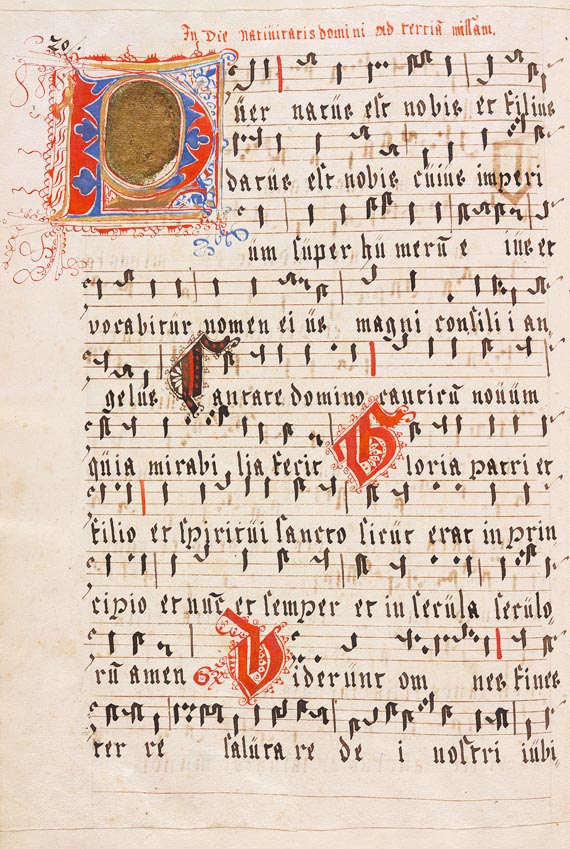 20.
In Die natiuitatis domini ad terciā missam.
Puer natus est nobis et filius
datus est nobis cuius imperi
um super humerū e ius et
vocabitur nomen ei us magni consilii an
gelus Cantate domino canticū nouum
quia mirabi lia fecit Gloria patri et
filio et spiritui sancto sicut erat in prin
cipio et nūc et semper et in secula seculo
rū amen Gr Viderunt om nes fines
ter re saluta re de i nostri iubi